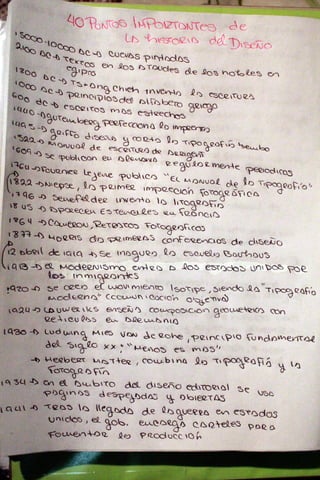 40 PUNTOS IMPORTANTES de
LA HISTORIA del DISEÑO
15000-10000 a.C → cuevas pintadas
2100 a.C → Textos en los ataudes de los nobles en
egipto
1800 a.C → Ts'ang Chieh inventa la escritura
1000 a.C → principios del alfabeto griego
600 dC → escritos mas estrechos
1440 → gutemberg perfecciona la imprenta
1495 → griffo diseña y corta la tipografía bembo
1522 → manual de escritura de Arrighi
1609 → se publican en Alemania regularmente periodicos
1760 → Fournier Lejeune publica "EL manual de la Tipografía"
1822 → Niepce, la primer impresión fotográfica
1796 → Senefelder inventa la litografía
1845 → Aparecen Estenciles en Francia
1864 → Cameron, Retratos Fotograficos
1877 → Morris da primeras conferencias de diseño
12 abril de 1919 → se inagura la escuela Bauthaus
1913 → el modernismo entra a los estados unidos por
los inmigrantes
1920 → se creo el movimiento Isotipe, siendo la "Tipografía
moderna" (comunicación objetiva)
1924 → Lauweriks enseña composicion geometrica con
reticulas en Alemania
1930 → Ludwing Mies Van de rohe, principio fundamental
del siglo xx; "Menos es mas"
→ Herbert Matter, combina la tipografía y la
fotografía
1934 → en el ambito del diseño editorial se usa
paginas despejadas y abiertas
1941 → Tras la llegada de la guerra en estados
unidos, el gob. encarga carteles para
fomentar la producción